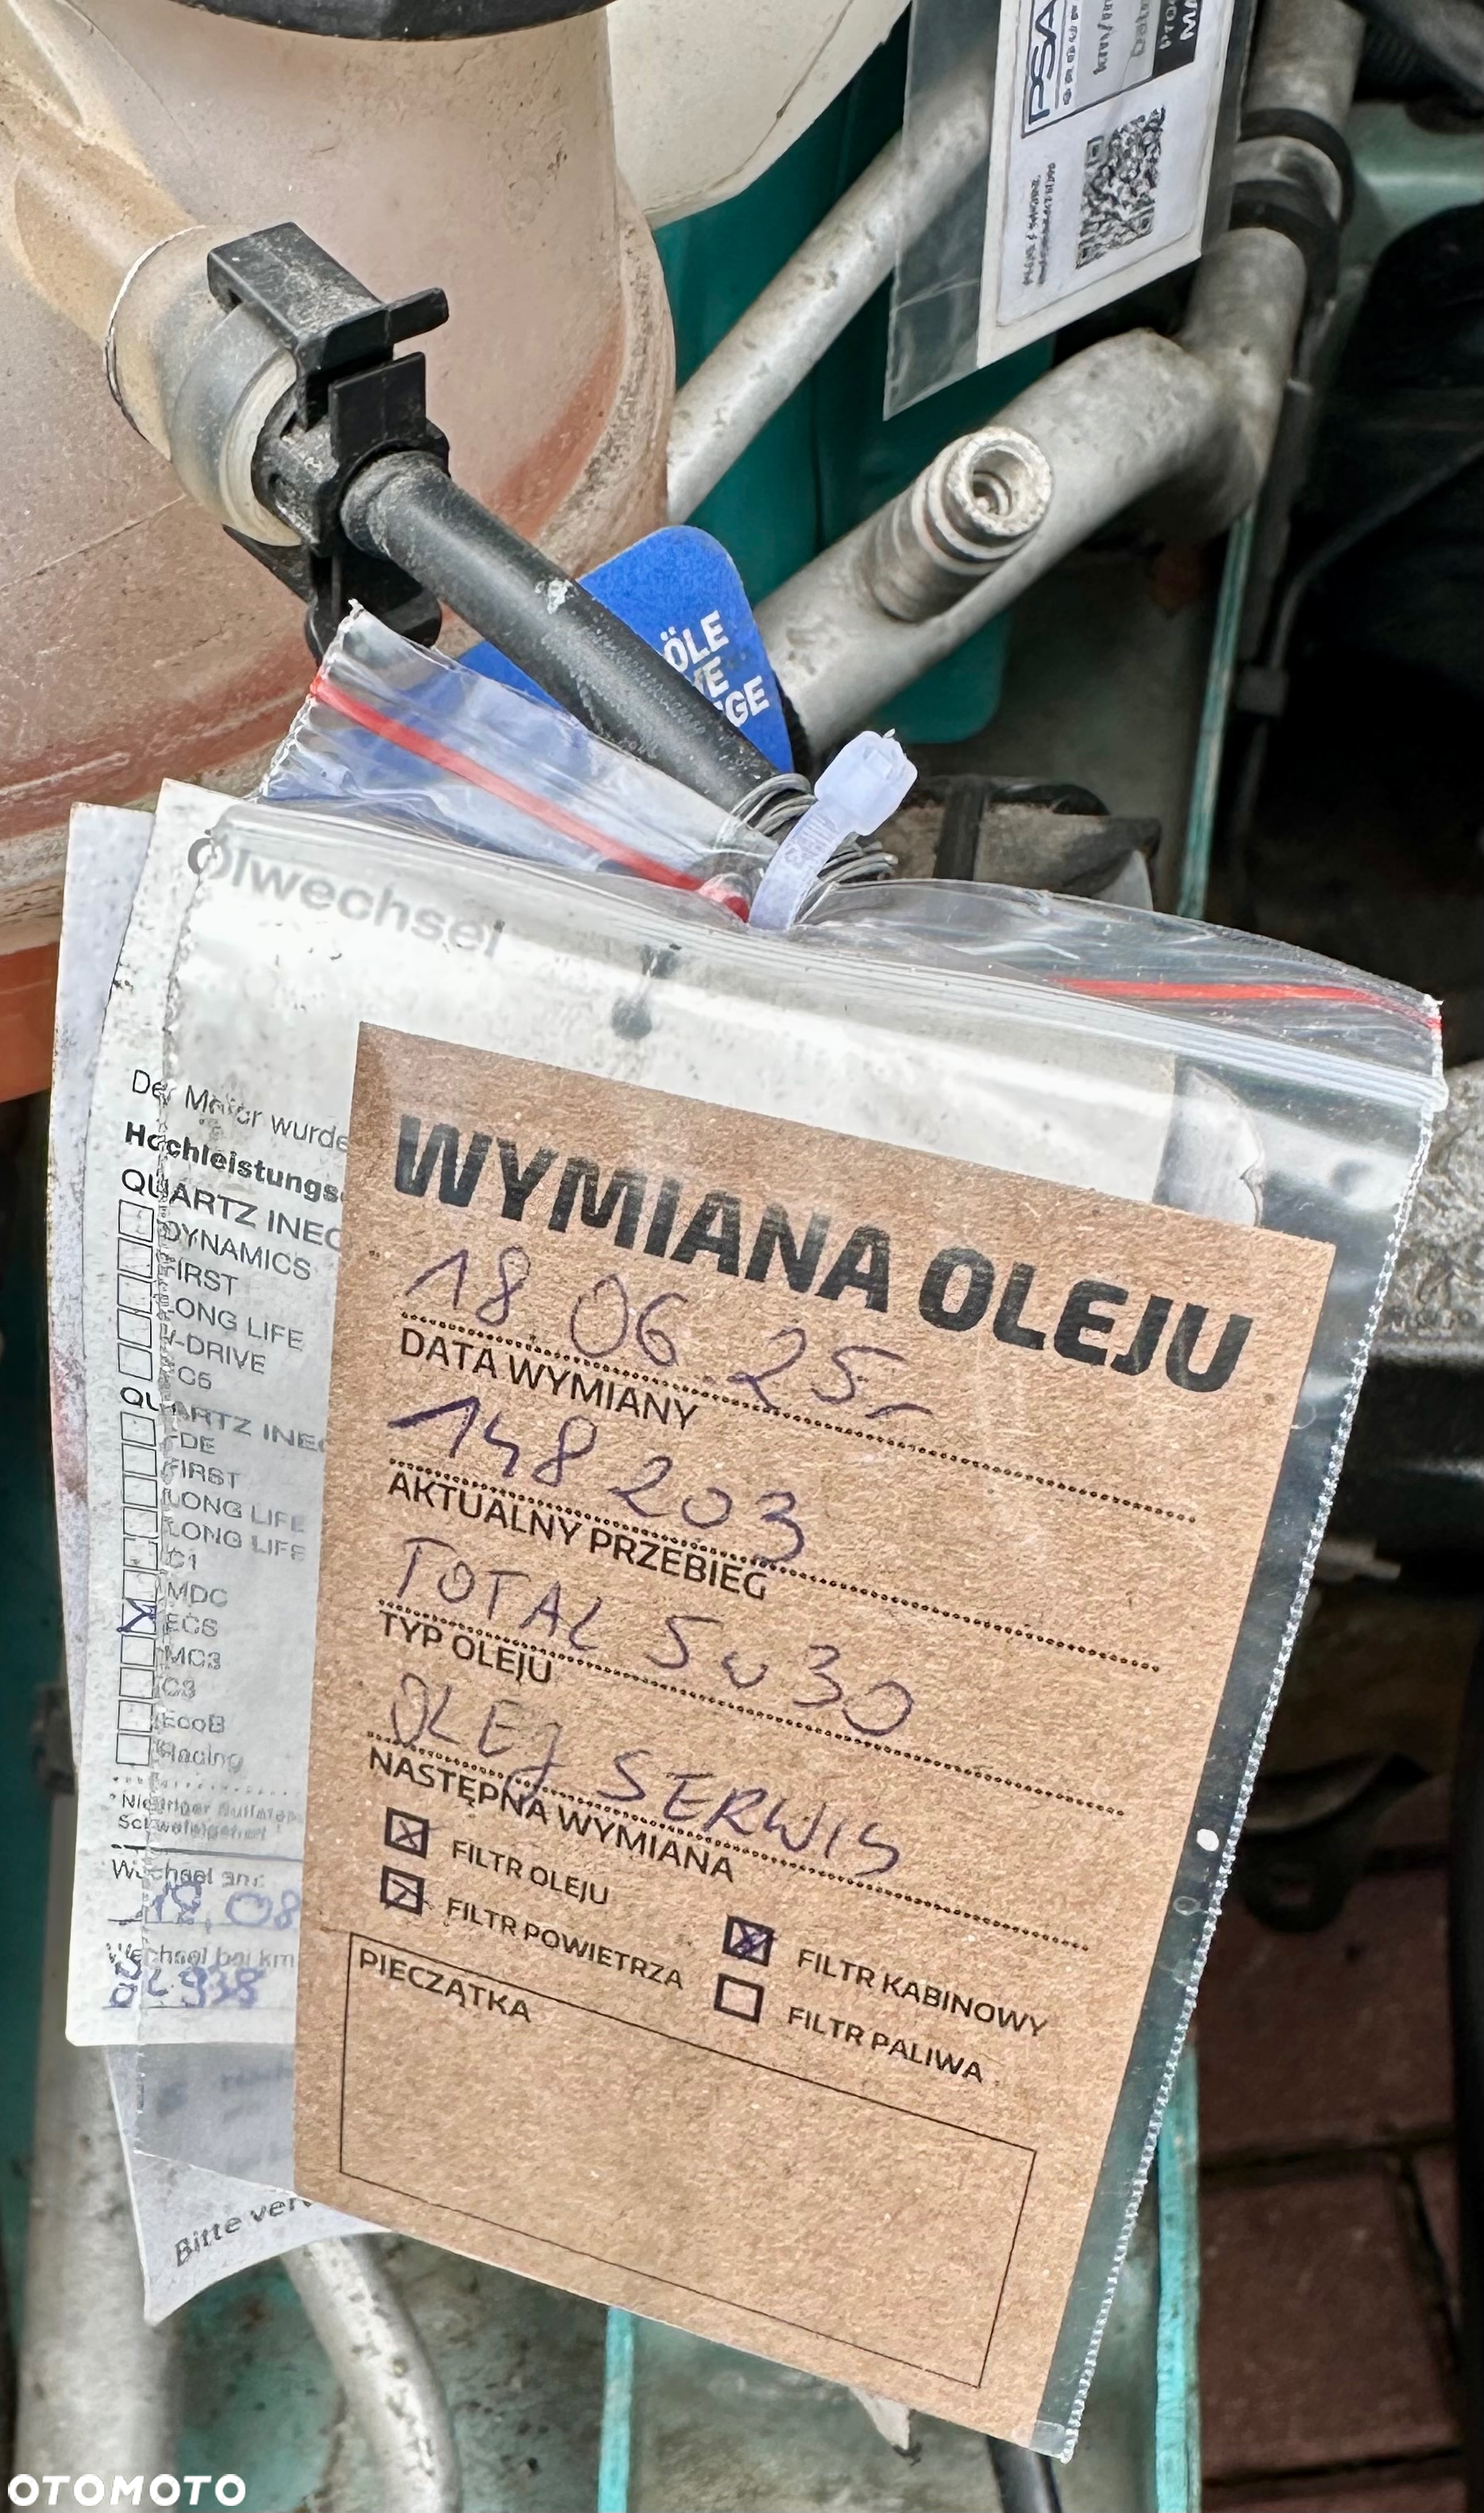 PSA
ÖLE
Ölwechsel
Der Motor wurde
Hochleistungs
QUARTZ INEO
DYNAMICS
FIRST
LONG LIFE
V-DRIVE
C5
QUARTZ INEO
FDE
FIRST
LONG LIFE
LONG LIFE
C1
MDC
ECS
MC3
C3
EcoB
Racing
Wechsel am:
18.08
Wechsel bei km
938
Bitte ver
WYMIANA OLEJU
18.06.25r
DATA WYMIANY
148 203
AKTUALNY PRZEBIEG
TOTAL 5w30
TYP OLEJU
OLEJ SERWIS
NASTĘPNA WYMIANA
FILTR OLEJU
FILTR POWIETRZA
FILTR KABINOWY
FILTR PALIWA
PIECZĄTKA
OTOMOTO